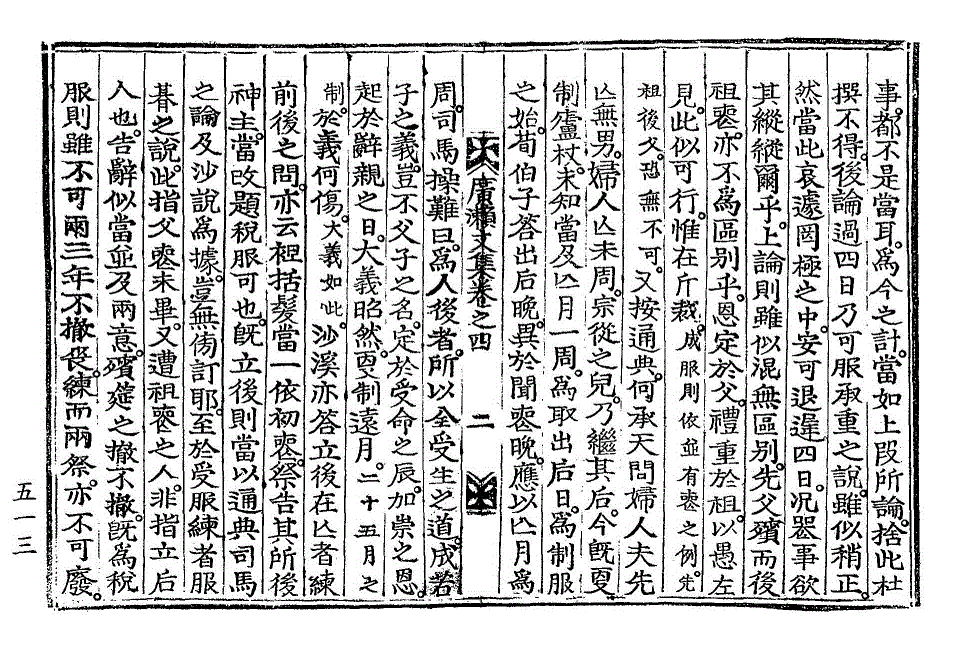 事。都不是當耳。爲今之計。當如上段所論。捨此杜
撰不得。後論過四日乃可服承重之說。雖似稍正。
然當此哀遽罔極之中。安可退遲四日。況喪事欲
其縱縱爾乎。上論則雖似混無區別。先父殯而後
祖喪。亦不爲區別乎。恩定於父。禮重於祖。以愚左
見。此似可行。惟在斤裁。成服則依並有喪之例。先
祖後父。恐無不可。又按通典。何承天問婦人夫先
亡無男。婦人亡未周。宗從之兒。乃繼其后。今旣更
制廬杖。未知當及亡月一周。爲取出后日。爲制服
之始。荀伯子答出后晚。異於聞喪晚。應以亡月爲
廣瀨文集卷之四 二
周。司馬操難曰。爲人後者。所以全受生之道。成若
子之義。豈不父子之名。定於受命之辰。加崇之恩。
起於辭親之日。大義昭然。更制遠月。二十五月之
制。於義何傷。大義如此。沙溪亦答立後在亡者練
前後之問。亦云袒括髮當一依初喪。祭告其所後
神主。當改題稅服可也。旣立後則當以通典司馬
之論及沙說爲據。豈無傍訂耶。至於受服練者服
朞之說。此指父喪未畢。又遭祖喪之人。非指立后
人也。告辭似當並及兩意。殯筵之撤不撤。旣爲稅
服則雖不可兩三年不撤。喪練而兩祭。亦不可廢。
五一三